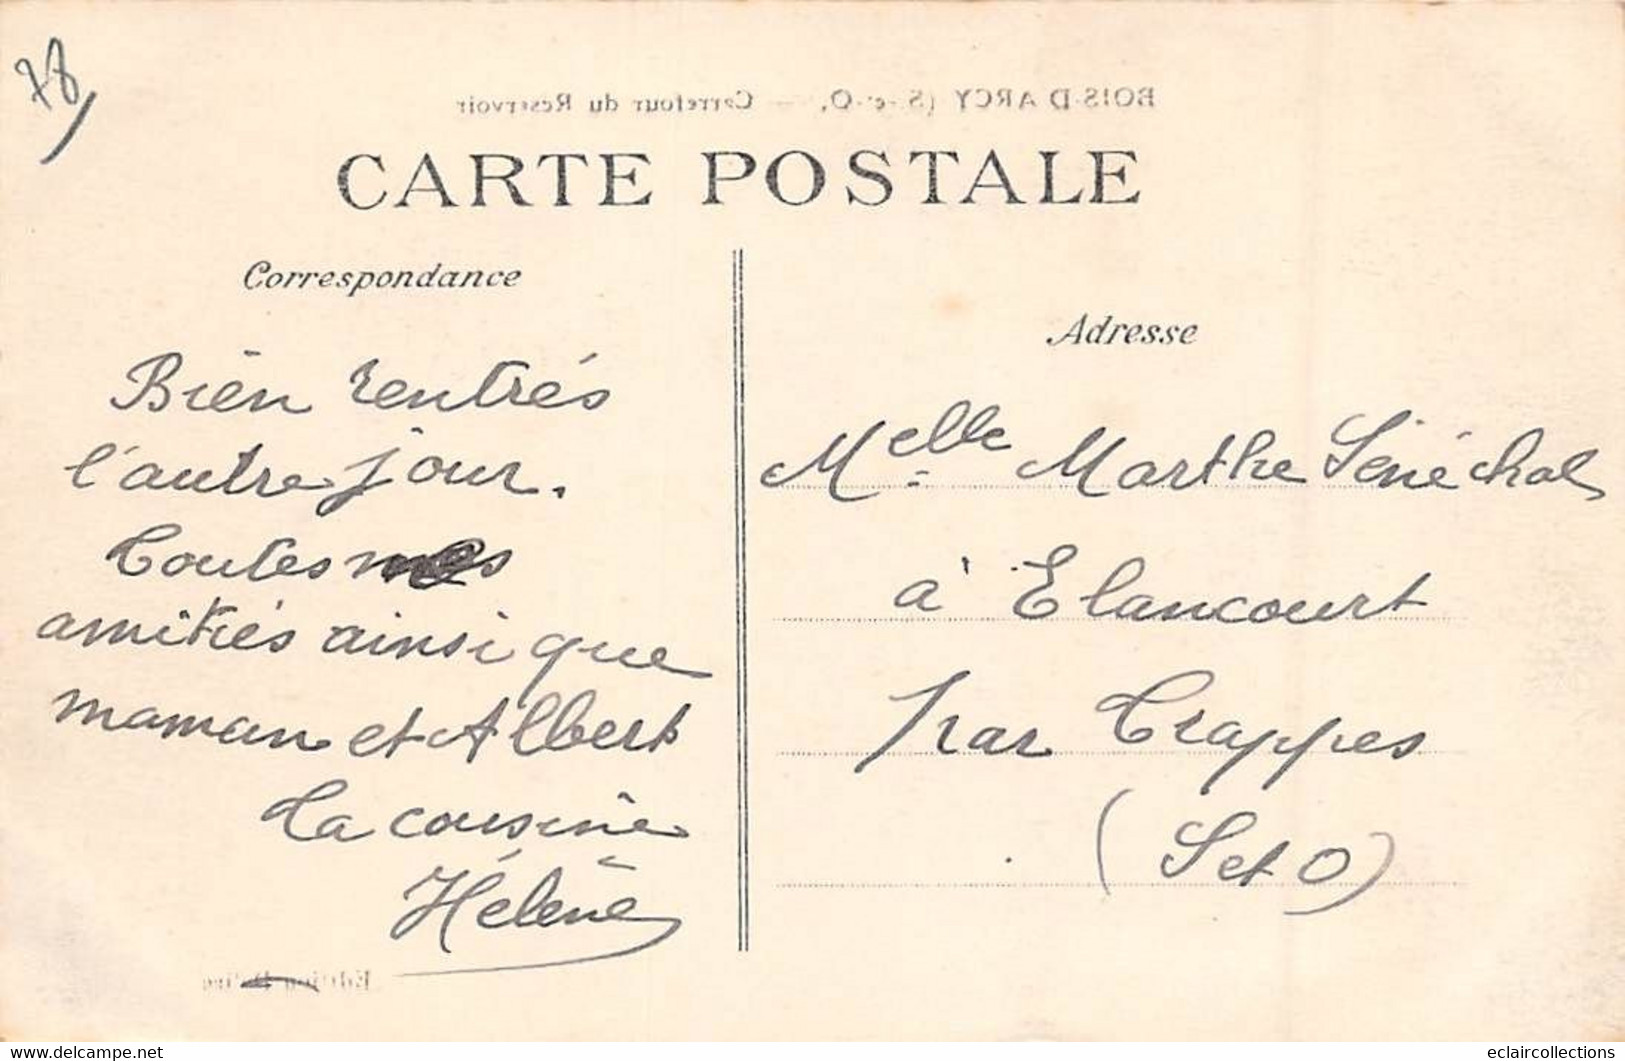 78
BOIS-D'ARCY (S.-et-O.) — Carrefour du Réservoir
CARTE POSTALE
Correspondance
Adresse
Bien rentrés
l'autre jour.
Toutes mes
amitiés ainsi que
maman et Albert
Ta cousine
Hélène
Melle Marthe Sénéchal
à Elancourt
par Trappes
(S et O)
Edition
eclaircollections